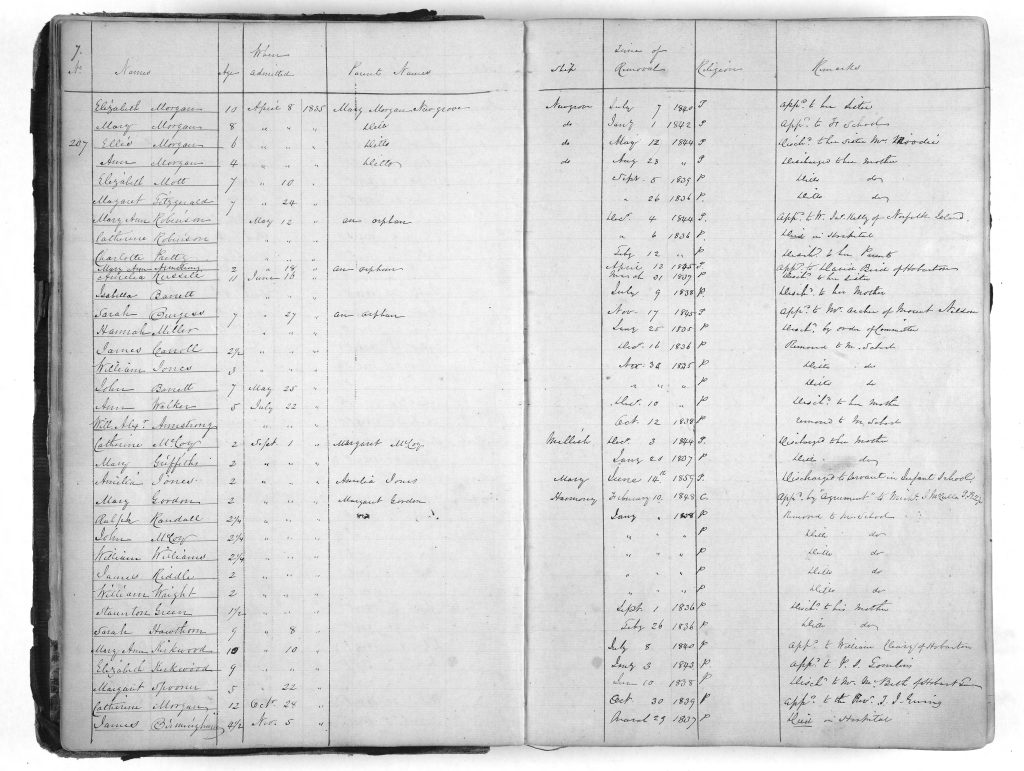 7.
No. Names Age When admitted Parents Names Ship Time of Removal Religion Remarks
Elizabeth Morgan 10 April 8 1835 Mary Morgan Newgrove Newgrove July 7 1840 P App.d to her Sister
Mary Morgan 8 " " " Ditto do Jany 1 1842 P App.d to School
207 Ellis Morgan 6 " " " Ditto do May 12 1844 P Disch.d to her Sister Mrs Moodie
Ann Morgan 4 " " " Ditto do Aug 28 " P Discharged to her Mother
Elizabeth Mott 7 " 10 " Sept. 5 1839 P Ditto do
Margaret Fitzgerald 7 " 24 " " 26 1836 P Ditto do
Mary Ann Robinson May 12 " an orphan Dec. 4 1844 P. App.d to W. Kelly of Norfolk Island
Catherine Robinson " " " " 6 1836 P. Died in Hospital
Charlotte " " " July 12 " P Disch.d to her Parents
Mary Ann Armstrong 2 " 18 " an orphan April 12 1845 P App.d to David Bird of Hobarton
Amelia Russell 11 June 13 " March 21 1837 P. Disch.d to her Sister
Isabella Barrett " " " July 9 1838 P. Disch.d to her Mother
Sarah Burgess 7 " 27 " an orphan Nov. 17 1845 P App.d to Mr. Archer of Mount
Hannah Miller " " " Jany 25 1835 P Disch.d by order of Committee
James Carroll 2½ " " " Dec. 16 1836 P Removed to M. School
William Jones 3 " " " Nov. 1835 P Ditto do
John Barrett 7 May 25 " " " " P Ditto do
Ann Walker 5 July 22 " Dec. 10 " P Disch.d to her Mother
Will. Alex.r Armstrong Oct 12 1838 P removed to M. School
Catherine McCoy 2 Sept 1 " Margaret McCoy Mellish Dec. 3 1844 P. Discharged to her Mother
Mary Griffiths 2 " " " Jany 20 1837 P Ditto do
Amelia Jones 2 " " " Amelia Jones Mary June 14th 1859 P Discharged to Servant in Infant School
Mary Gordon 2 " " " Margaret Gordon Harmony January 10 1848 C. App.d by agreement to
Ralph Randall 2¼ " " " Jany " 1838 P Removed to M. School
John McCoy 2¼ " " " " " " P Ditto do
William Williams 2¼ " " " " " " P Ditto do
James Riddle 2 " " " " " " P Ditto do
William Wright 2 " " " P Ditto do
Staunton Green 1½ " " " Sept. 1 1836 P Disch.d to his Mother
Sarah Hawthorn 9 " 8 " July 26 1836 P Ditto do
Mary Ann Kirkwood 10 " 10 " July 8 1840 P App.d to William Cleary of Hobarton
Elizabeth Kirkwood 9 " " " Jany 3 1843 P. App.d to
Margaret Spooner 5 " 22 " 10 1838 P Disch.d to Mr. McBeth of Hobart Town
Catherine Morgan 12 Oct. 24 " Oct 30 1839 P App.d to the Rev. T. J. Ewing
James Birmingham 4½ Nov. 5 " March 29 1837 P Died in Hospital